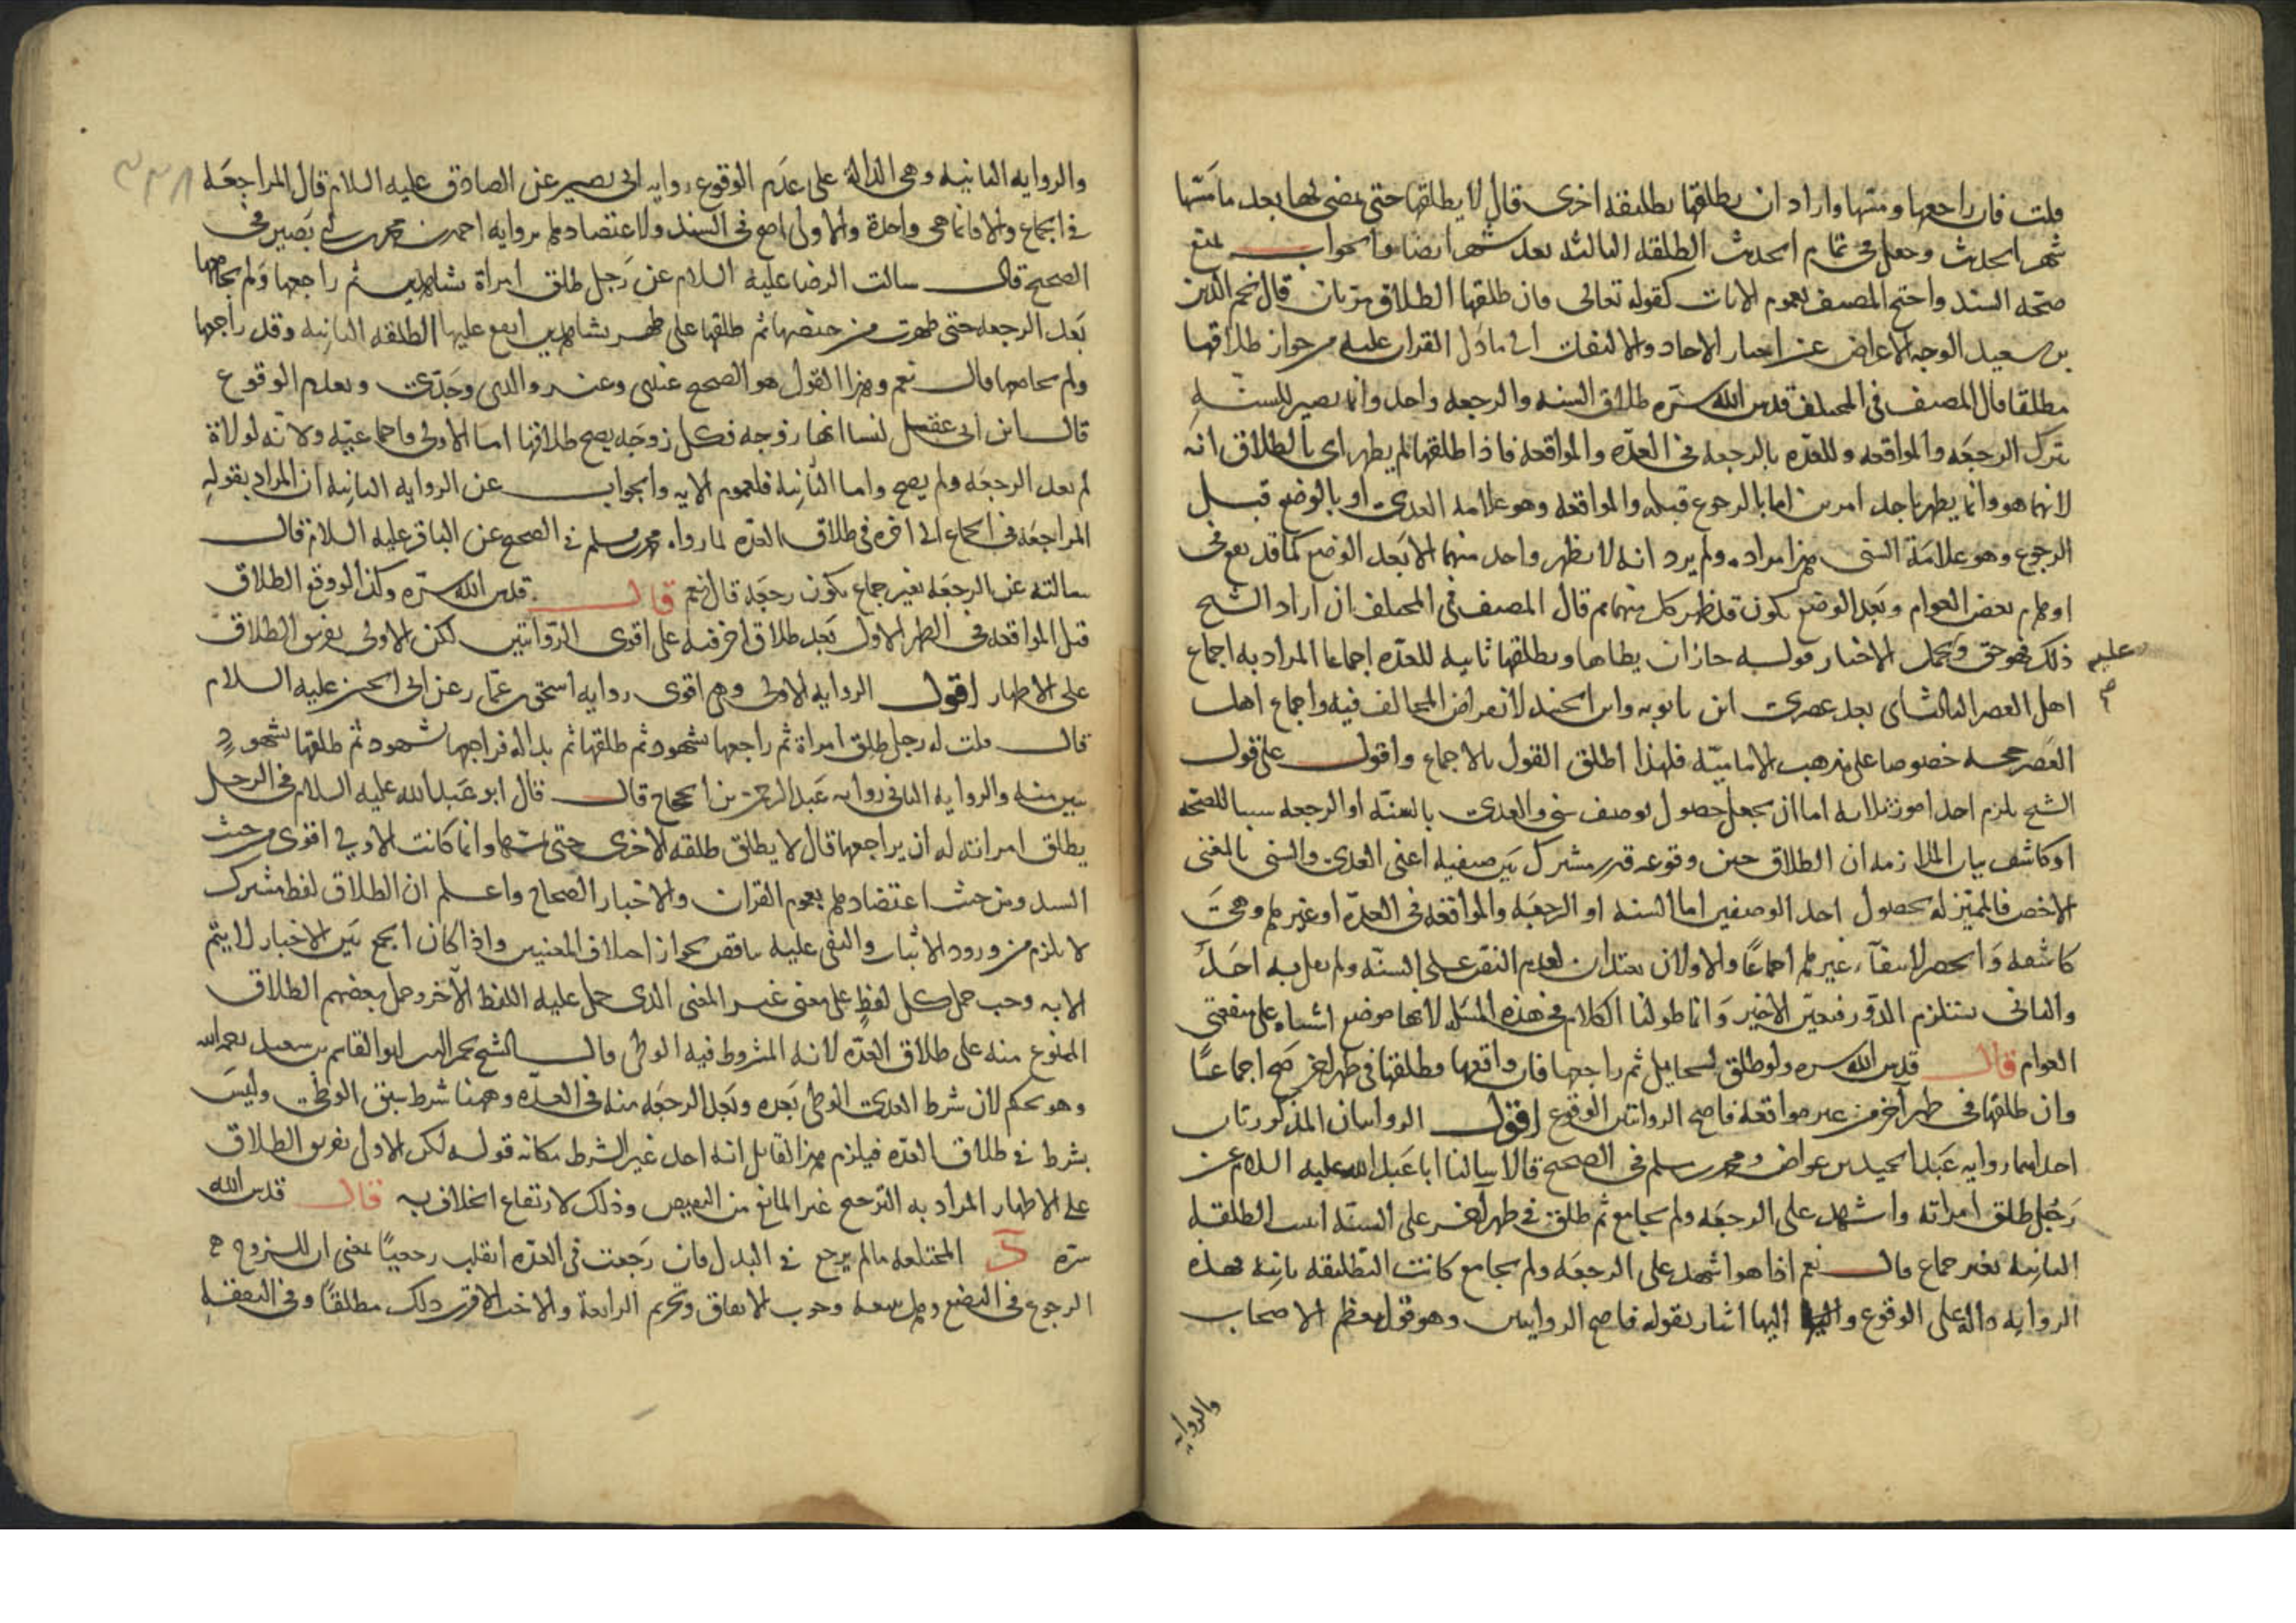 قلت فان راجعها ومسها واراد ان يطلقها تطليقة اخرى قال لا يطلقها حتى يمضى لها بعد ما مسها
شهر الحديث وجعل فى تمام الحديث الطلقه الثالثه بعد شهر ايضا والجواب بمنع
صحه السند واحتج المصنف بعموم الايات كقوله تعالى فان طلقها الطلاق مرتان قال نجم الدين
بن سعيد الوجه الاعراض عن اخبار الاحاد والالتفات الى ما دل القران عليه من جواز طلاقها
مطلقا قال المصنف فى المختلف قدس الله سره طلاق السنه والرجعه واحد وانما يصير للسنه
بترك الرجعه والمواقعه وللعده بالرجعه فى العده والمواقعه فاذا طلقها لم يظهر اى الطلاق انه
لايهما هو وانما يظهر باحد امرين اما بالرجوع قبله والمواقعه وهو علامه العدى او بالوضع قبل
الرجوع وهو علامة السنى هذا مراده ولم يرد انه لا يظهر واحد منهما الا بعد الوضع كما قد يقع فى
اوهام بعض العوام وبعد الوضع يكون قد ظهر كل منهما ثم قال المصنف فى المختلف ان اراد الشيخ
ذلك فهو حق وتحمل الاخبار عليه قوله جاز ان يطاها ويطلقها ثانيه للعده اجماعا المراد به اجماع
اهل العصر الثالث اى بعد عصرى ابن بابويه وابن الجنيد لانقراض المخالف فيه واجماع اهل
العصر حجه خصوصا على مذهب الاماميه فلهذا اطلق القول بالاجماع واقول على قول
الشيخ يلزم احد امور ثلاثه اما ان يجعل حصول وصف سنى والعدى بالسنه او الرجعه سببا للصحه
او كاشف بيان الملازمه ان الطلاق حين وقوعه قدر مشترك بين صنفيه اعنى العدى والسنى بالمعنى
الاخص فالمميز له بحصول احد الوصفين اما السنه او الرجعه والمواقعه فى العده او غيرهم وهى
كاشفه والحصر لانتفاء غيرهم اجماعا والاولان بعدم النص على السنه ولم يقل به احد
والثانى يستلزم الدور فتعين الاخير وانما طولنا الكلام فى هذه المسله لانها موضع اشتباه على متفقهى
العوام قال قدس الله سره ولو طلق الحايل ثم راجعها فان واقعها وطلقها فى طهر اخر صح اجماعا
وان طلقها فى طهر آخر من غير مواقعه فاصح الروايتين الوقوع اقول الروايتان المذكورتان
احداهما روايه عبد الحميد بن عواض ومحمد بن مسلم فى الصحيح قالا سالنا ابا عبد الله عليه السلام عن
رجل طلق امراته واشهد على الرجعه ولم يجامع ثم طلق فى طهر آخر على السنه اتثبت الطلقه
الثانيه بغير جماع قال نعم اذا هو اشهد على الرجعه ولم يجامع كانت التطليقه ثابته فهذه
الروايه داله على الوقوع واليها اشار بقوله فاصح الروايتين وهو قول معظم الاصحاب
والروايه
والروايه الثانيه وهى الدالة على عدم الوقوع روايه ابى بصير عن الصادق عليه السلام قال المراجعه
فى الجماع والا فانما هى واحدة والاولى اصح فى السند ولاعتضادها بروايه احمد بن محمد بن ابى بصير فى
الصحيح قال سالت الرضا عليه السلام عن رجل طلق امراة بشاهدين ثم راجعها ولم يجامعها
بعد الرجعه حتى طهرت من حيضها ثم طلقها على طهر بشاهدين ايقع عليها الطلقه الثانيه وقد راجعها
ولم يجامعها قال نعم وهذا القول هو الصحيح عندى وعند والدى وجدى وبعدم الوقوع
قال ابن ابى عقيل لنا انها زوجه فكل زوجه يصح طلاقها اما الاولى فاجماعيه ولانه لولاة
لم يعد الرجعه ولم يصح واما الثانيه فلعموم الايه والجواب عن الروايه الثانيه ان المراد بقوله
المراجعه فى الجماع الى اخره فى طلاق العده لما رواه محمد بن مسلم فى الصحيح عن الباقر عليه السلام قال
سالته عن الرجعه بغير جماع يكون رجعه قال نعم قال قدس الله سره وكذا لو وقع الطلاق
قبل المواقعه فى الطهر الاول بعد طلاق اخر فيه على اقوى الروايتين لكن الاولى تفريق الطلاق
على الاطهار اقول الروايه الاولى وهى اقوى روايه اسحق بن عمار عن ابى الحسن عليه السلام
قال قلت له رجل طلق امراة ثم راجعها بشهود ثم طلقها ثم بدا له فراجعها بشهود ثم طلقها بشهود
تبين منه والروايه الثانى روايه عبد الرحمن بن الحجاج قال قال ابو عبد الله عليه السلام فى الرجل
يطلق امراته له ان يراجعها قال لا يطلق طلقه الاخرى حتى يمسها وانما كانت الاولى اقوى من حيث
السند ومن حيث اعتضادها بعموم القران والاخبار الصحاح واعلم ان الطلاق لفظ مشترك
لا يلزم من ورود الاثبات والنفى عليه تناقض لجواز اختلاف المعنيين واذا كان الجمع بين الاخبار لا يتم
الا به وجب حمل كل لفظ على معنى غير المعنى الذى حمل عليه اللفظ الآخر وحمل بعضهم الطلاق
الممنوع منه على طلاق العده لانه المشروط فيه الوطى قال الشيخ نجم الدين ابو القاسم بن سعيد رحمه الله
وهو تحكم لان شرط العدى الوطى بعده وبعد الرجعه منه فى العده وههنا شرط سبق الوطى وليس
بشرط فى طلاق العده فيلزم هذا القايل انه احد غير الشرط مكانه قوله لكن الاولى تفريق الطلاق
على الاطهار المراد به الترجيح غير المانع من النقيض وذلك لارتفاع الخلاف به قال قدس الله
سره المختلعه ما لم يرجع فى البذل فان رجعت فى العده انقلب رجعيا بمعنى ان للزوج ح
الرجوع فى البضع وهل يتبعه وجوب الانفاق وتحريم الرابعة والاخت الاقرب ذلك مطلقا وفى النفقه